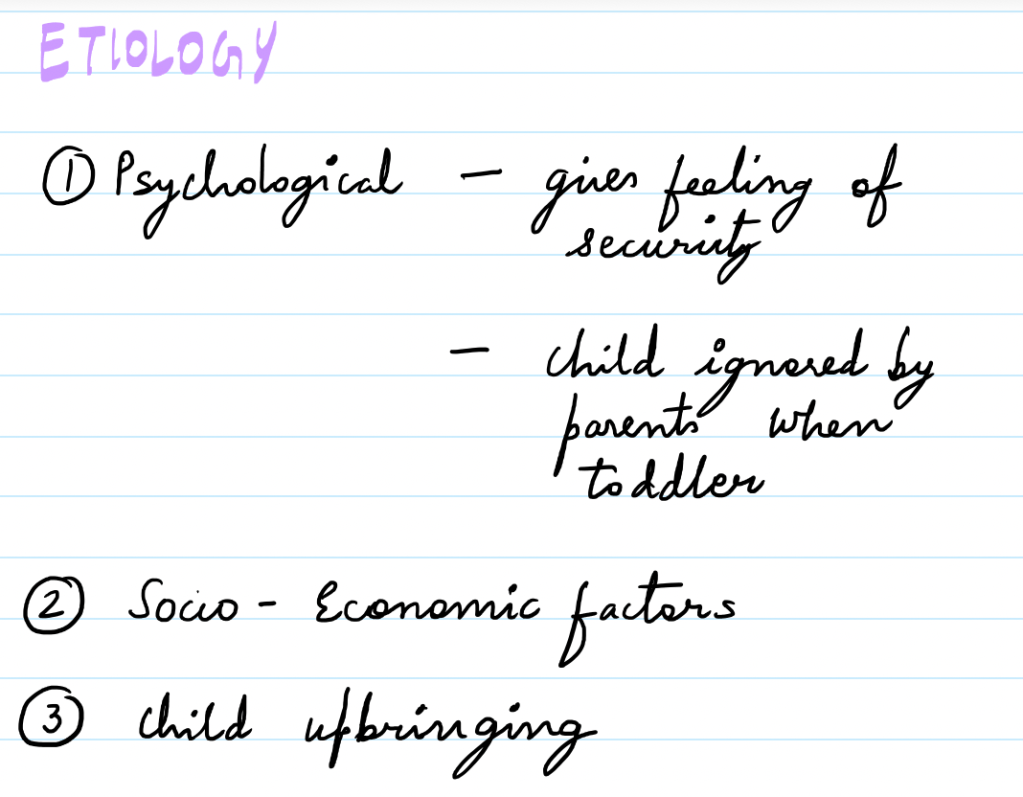 ETIOLOGY
① Psychological - gives feeling of
security
- child ignored by
parents when
toddler
② Socio - Economic factors
③ child upbringing